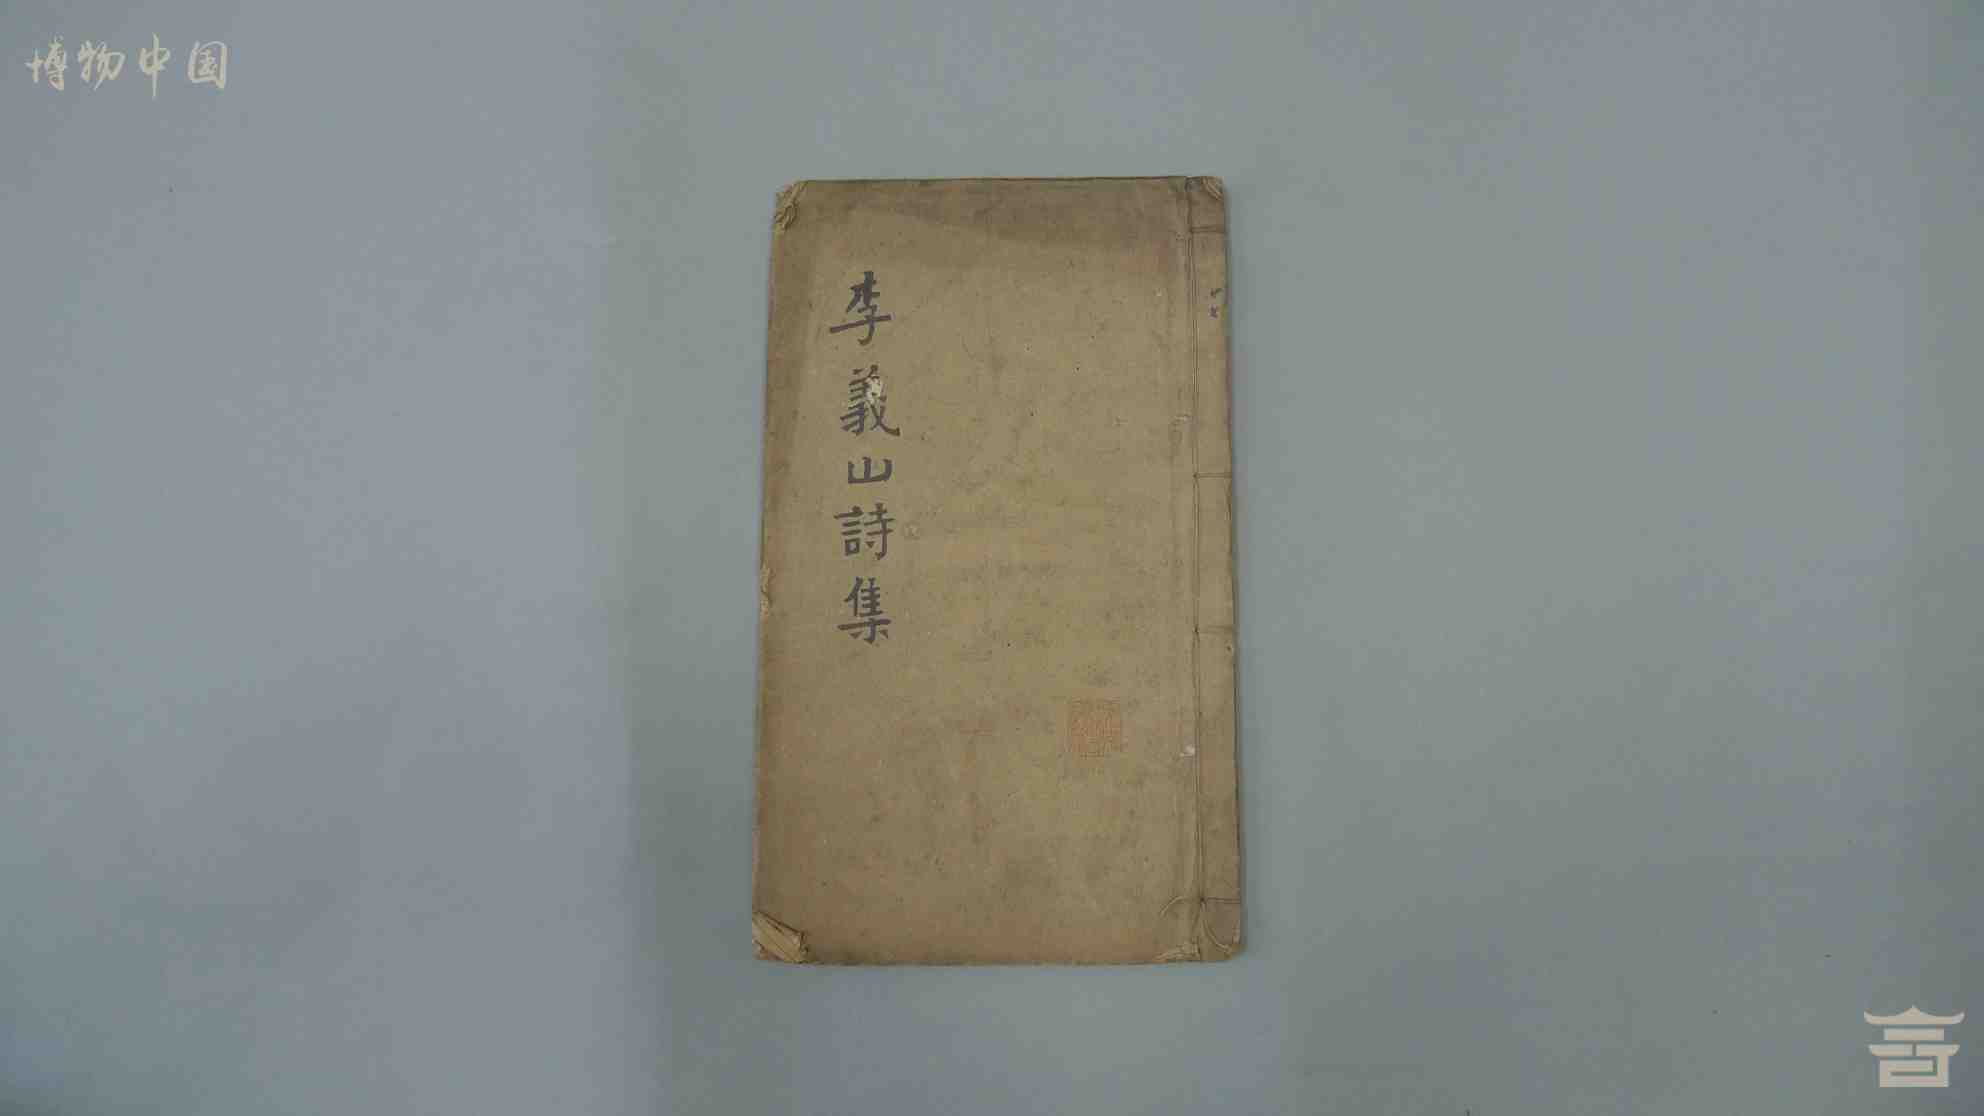 博物中国
李義山詩集